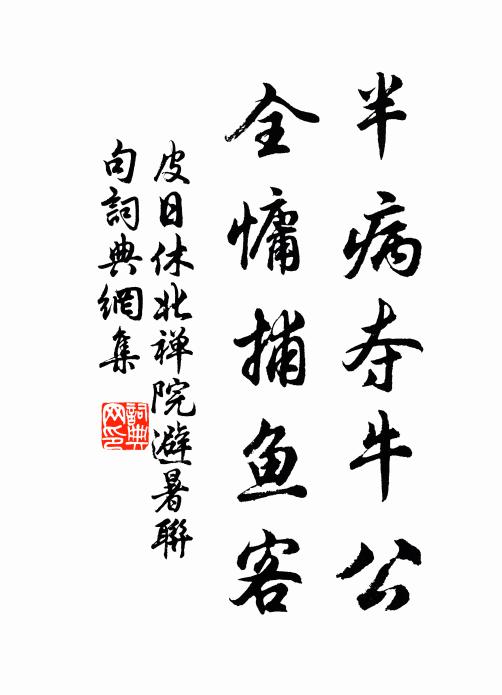 半病夺牛公
全慵捕鱼客
皮日休北禅院避暑聯
句詞典網集
詞典
网印